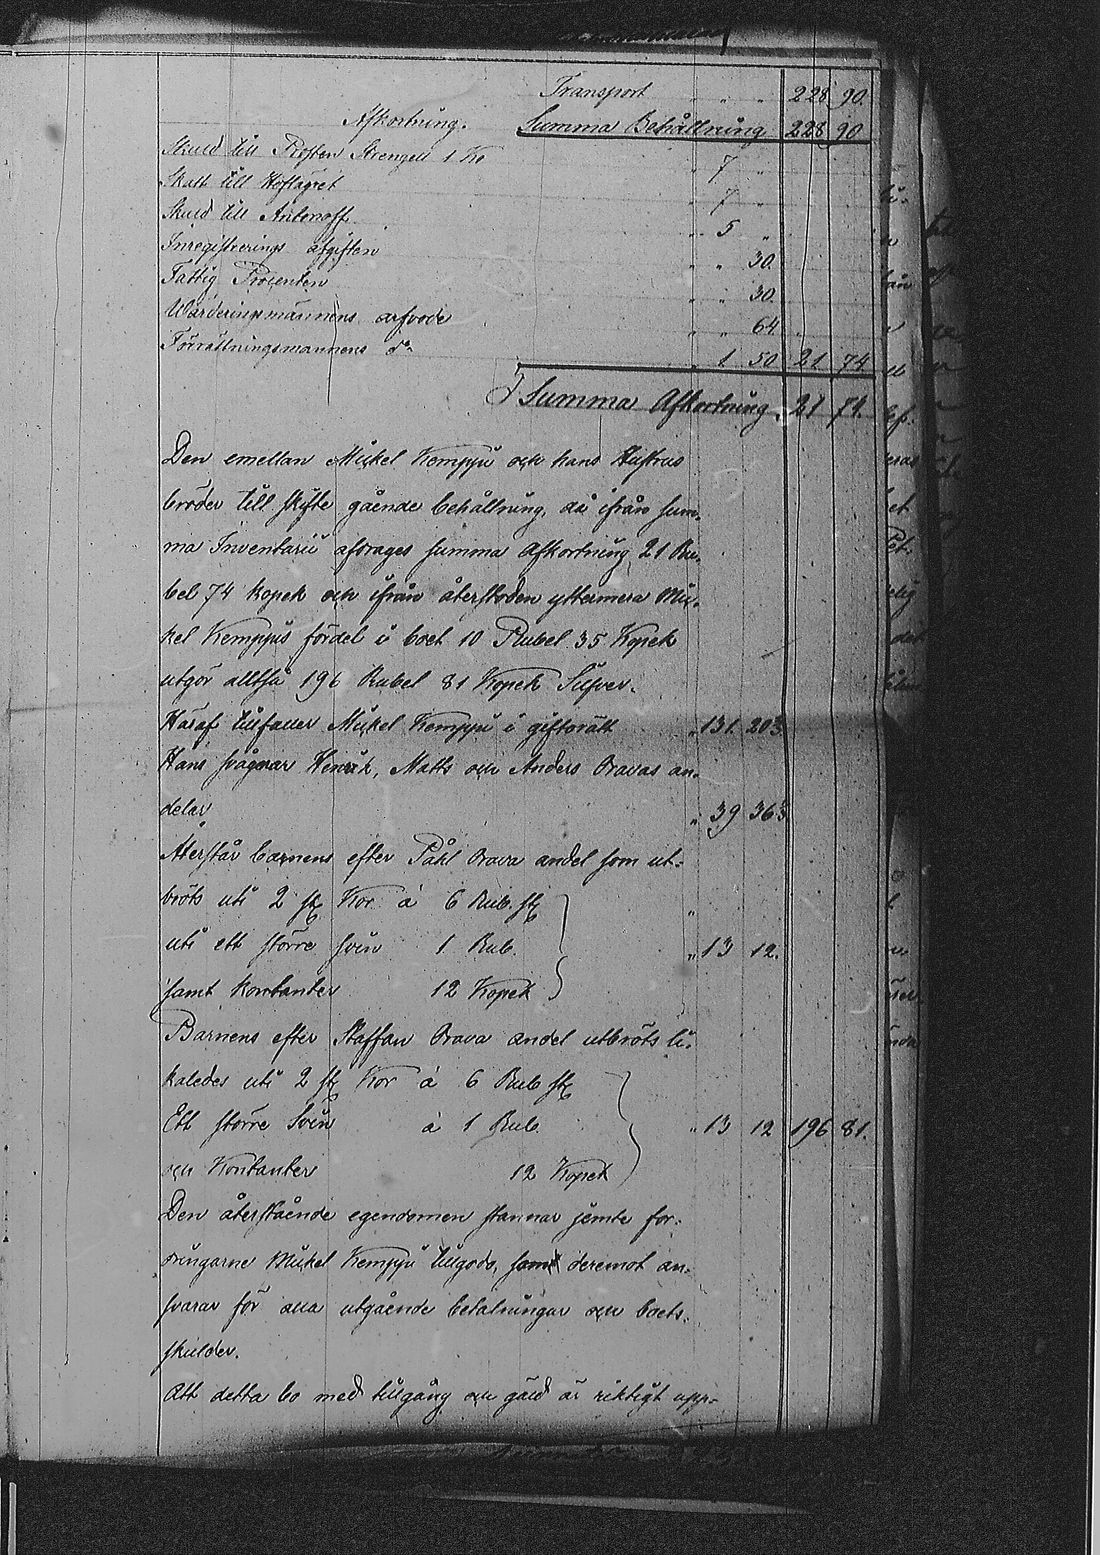 Transport " " " 228 90.
Afkortning. Summa Behållning 228 90
Skuld till Prosten Strengell 1 Ko " 7 "
Skatt till Höglägret " 7 "
Skuld till Antonoff " 5 "
Inregistrerings afgiften " " 30.
Fattig Procenten " " 30.
Värderingsmännens arfvode " " 64
Förrättningsmannens do " 1 50 21 74
Summa Afkortning 21 74.
Den emellan Mickel Kemppi och hans Hustrus
bröder till skifte gående behållning, då ifrån sum-
ma Inventarii afdrages summa afkortning 21 Ru-
bel 74 kopek och ifrån återstoden yttermera Mic-
kel Kemppis fördel i boet 10 Rubel 35 Kopek
utgör alltså 196 Rubel 81 Kopek Silfver.
Häraf tillfaller Mickel Kemppi i giftorätt " 131. 20
Hans svågrar Henrik, Matts och Anders Oravas an-
delar " 39 36
Återstår barnens efter Påhl Orava andel som ut-
bröts uti 2 st Kor à 6 Rub. st "
uti ett större svin 1 Rub. " 13 12.
samt kontanter 12 Kopek
Barnens efter Staffan Orava andel utbröts li-
kaledes uti 2 st Kor à 6 Rub st
Ett större Svin à 1 Rub. " 13 12 196 81.
och Kontanter 12 Kopek
Den återstående egendomen stannar jemte for-
dringarne Mickel Kemppi tillgodo, som deremot an-
svarar för alla utgående betalningar och boets
skulder.
Att detta bo med tillgång och gäld är riktigt upp-